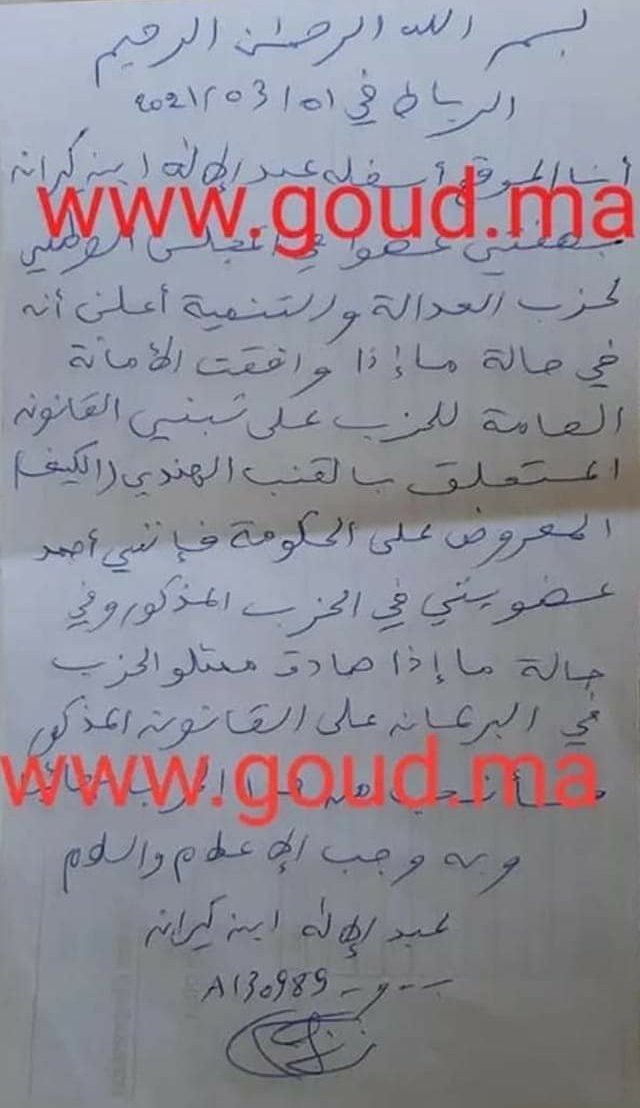 بسم الله الرحمان الرحيم
الرباط في 2021/03/01
أنا الموقع أسفله عبد الإلاه ابن كيران
www.goud.ma
بصفتي عضوا في المجلس الوطني
لحزب العدالة والتنمية أعلن أنه
في حالة ما إذا وافقت الأمانة
العامة للحزب على تبني القانون
المتعلق بالقنب الهندي (الكيف)
المعروض على الحكومة فإنني أجمد
عضويتي في الحزب المذكور وفي
حالة ما إذا صادق ممثلو الحزب
في البرلمان على القانون المذكور
www.goud.ma
وبه وجب الإعلام والسلام
عبد الإلاه ابن كيران
ب-و- A130989